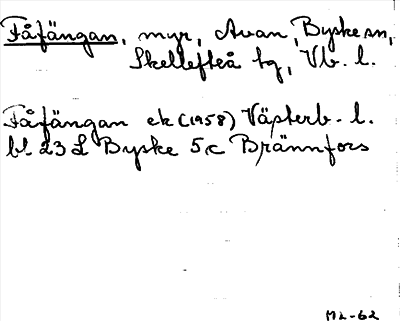 Fåfängan, myr, Avan, Byske sn,
Skellefteå tg, Vb. l.
Fåfängan ek (1958) Västerb. l.
bl 23 L Byske 5c Brännfors
M2-62